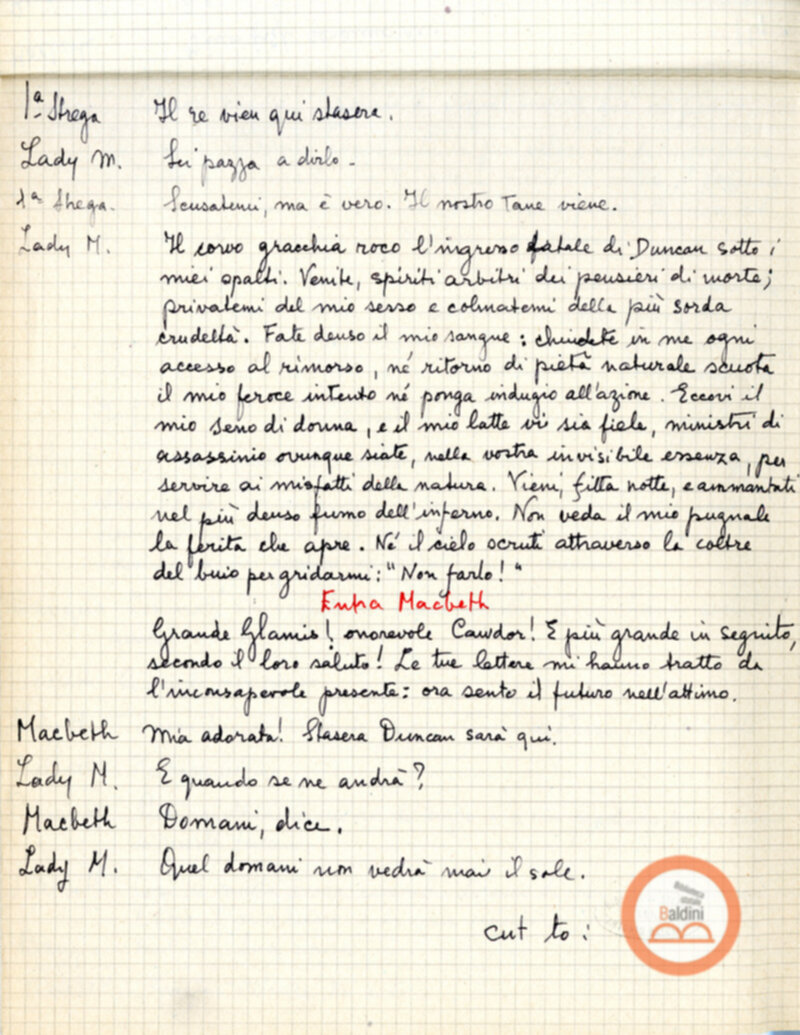 1ª Strega Il re vien qui stasera.
Lady M. Sei pazza a dirlo -
1ª Strega. Scusatemi, ma è vero. Il nostro Tane viene.
Lady M. Il corvo gracchia roco l'ingresso fatale di Duncan sotto i
miei spalti. Venite, spiriti arbitri dei pensieri di morte;
privatemi del mio sesso e colmatemi della più sorda
crudeltà. Fate denso il mio sangue: chiudete in me ogni
accesso al rimorso, né ritorno di pietà naturale scuota
il mio feroce intento né ponga indugio all'azione. Eccovi il
mio seno di donna, e il mio latte vi sia fiele, ministri di
assassinio ovunque siate, nella vostra invisibile essenza, per
servire ai misfatti della natura. Vieni, fitta notte, e ammantati
nel più denso fumo dell'inferno. Non veda il mio pugnale
la ferita che apre. Né il cielo scruti attraverso la coltre
del buio per gridarmi: "Non farlo!"
Entra Macbeth
Grande Glamis! onorevole Cawdor! E più grande in seguito,
secondo il loro saluto! Le tue lettere mi hanno tratto da
l'inconsapevole presente: ora sento il futuro nell'attimo.
Macbeth Mia adorata! Stasera Duncan sarà qui.
Lady M. E quando se ne andrà?
Macbeth Domani, dice.
Lady M. Quel domani non vedrà mai il sole.
cut to:
Biblioteca
statale
Baldini